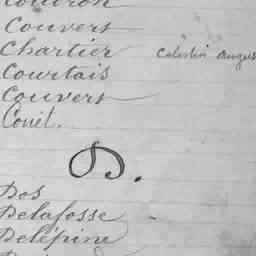 Couvert
Chartier Celestin Augus
Courtais
Couvert
Couet.
D.
Dos
Delafosse
Delépine